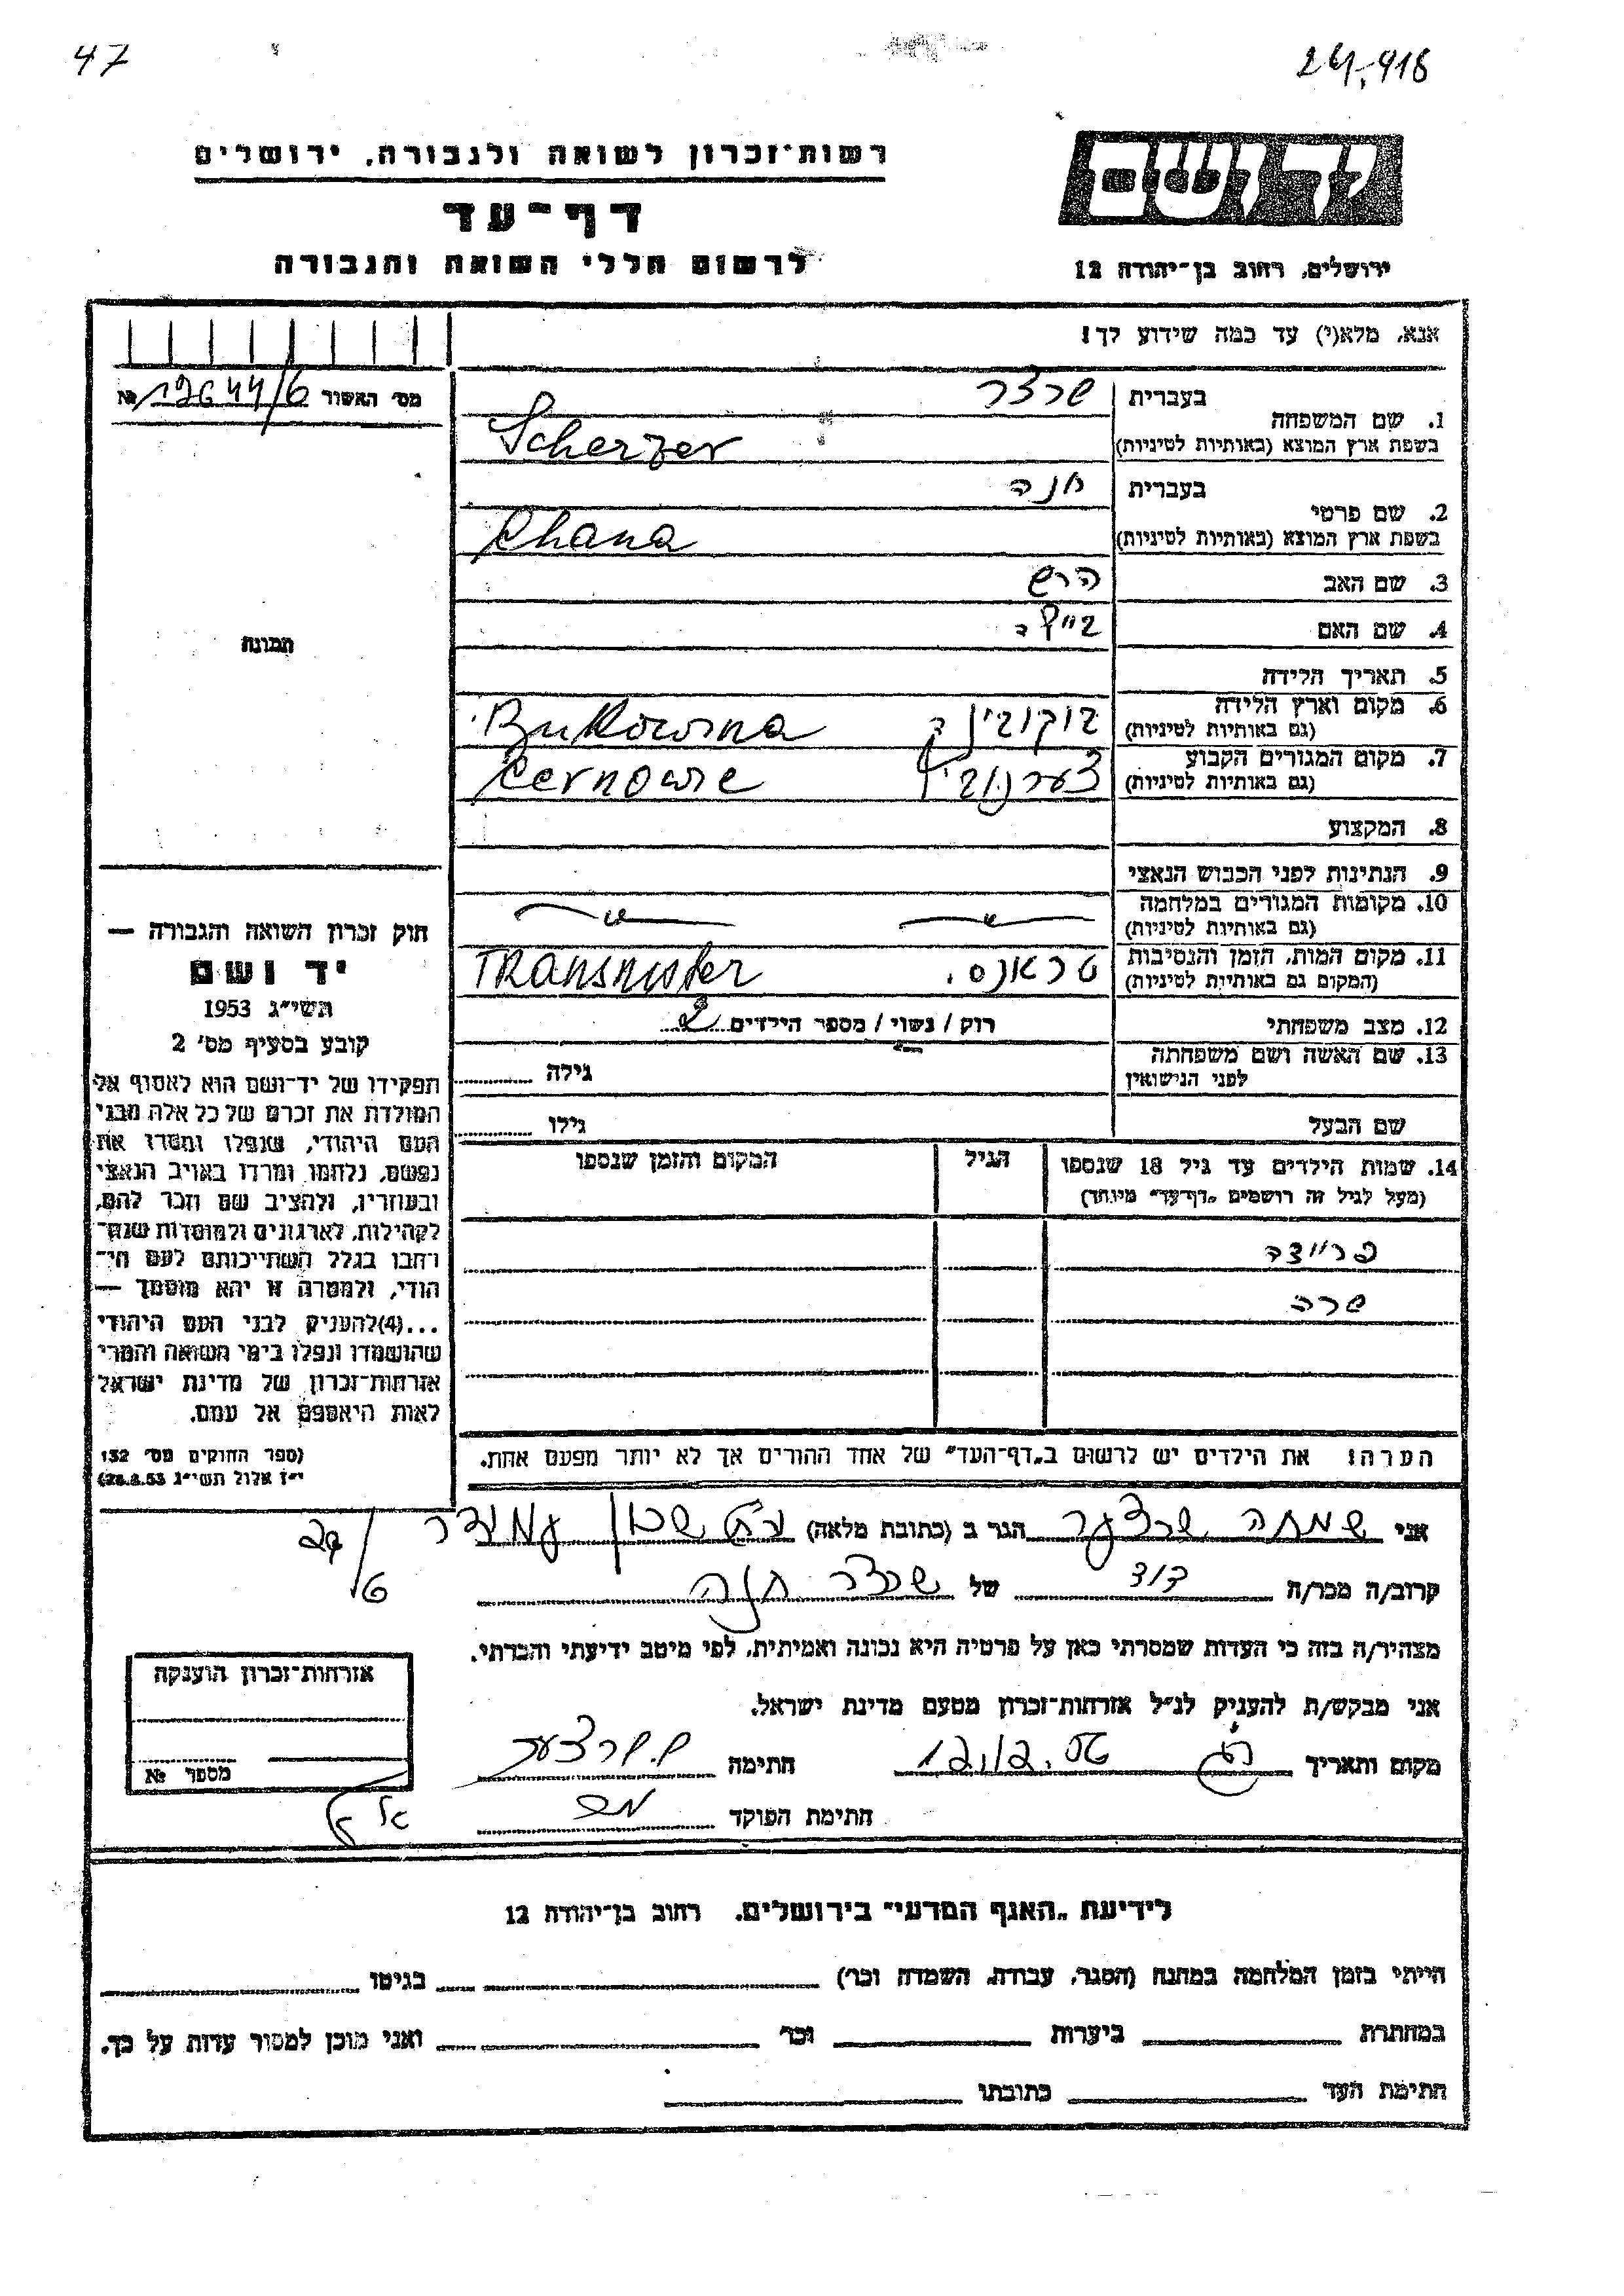 47
24.918
רשות־זכרון לשואה ולגבורה, ירושלים
יד ושם
דף־עד
לרשום חללי השואה והגבורה
ירושלים, רחוב בן־יהודה 12
אנא, מלא(י) עד כמה שידוע לך!
מס׳ האשור 12644/6 №
בעברית שרצר
1. שם המשפחה
בשפת ארץ המוצא (באותיות לטיניות) Scherzer
בעברית חנה
2. שם פרטי
בשפת ארץ המוצא (באותיות לטיניות) Chana
3. שם האב הרש
4. שם האם בילה
תמונה
5. תאריך הלידה
6. מקום וארץ הלידה בוקובינה Bukowina
(גם באותיות לטיניות)
7. מקום המגורים הקבוע צערנוביץ Cernowic
(גם באותיות לטיניות)
8. המקצוע
9. הנתינות לפני הכבוש הנאצי
10. מקומות המגורים במלחמה
(גם באותיות לטיניות)
11. מקום המות, הזמן והנסיבות טראנס. TRANSNISTER
(המקום גם באותיות לטיניות)
12. מצב משפחתי רוק / נשוי / מספר הילדים 2
13. שם האשה ושם משפחתה גילה
לפני הנישואין
שם הבעל גילו
חוק זכרון השואה והגבורה —
יד ושם
תשי״ג 1953
קובע בסעיף מס׳ 2
תפקידו של יד־ושם הוא לאסוף אל
המולדת את זכרם של כל אלה מבני
העם היהודי, שנפלו ומסרו את
נפשם, נלחמו ומרדו באויב הנאצי
ובעוזריו, ולהציב שם וזכר להם,
לקהילות, לארגונים ולמוסדות שנח־
רבו בגלל השתייכותם לעם הי־
הודי, ולמטרה זו יהא מוסמך —
...(4)להעניק לבני העם היהודי
שהושמדו ונפלו בימי השואה והמרי
אזרחות־זכרון של מדינת ישראל
לאות היאספם אל עמם.
(ספר החוקים מס׳ 132
י״ז אלול תשי״ג 28.8.53)
14. שמות הילדים עד גיל 18 שנספו הגיל המקום והזמן שנספו
(מעל לגיל זה רושמים „דף־עד״ מיוחד)
פרידה
שרה
הערה! את הילדים יש לרשום ב„דף־העד״ של אחד ההורים אך לא יותר מפעם אחת.
אני שמחה שרצער הגר ב (כתובת מלאה)
קרוב/ה מכר/ה דוד של שרצר חנה
מצהיר/ה בזה כי העדות שמסרתי כאן על פרטיה היא נכונה ואמיתית, לפי מיטב ידיעתי והכרתי.
אני מבקש/ת להעניק לנ״ל אזרחות־זכרון מטעם מדינת ישראל.
מקום ותאריך חתימה ש. שרצער
חתימת הפוקד
אזרחות־זכרון הוענקה
מספר №
לידיעת „האגף המדעי״ בירושלים, רחוב בן־יהודה 12
הייתי בזמן המלחמה במחנה (הסגר, עבודה, השמדה וכר) בגיטו
במחתרת ביערות וכר ואני מוכן למסור עדות על כך.
חתימת העד כתובתו